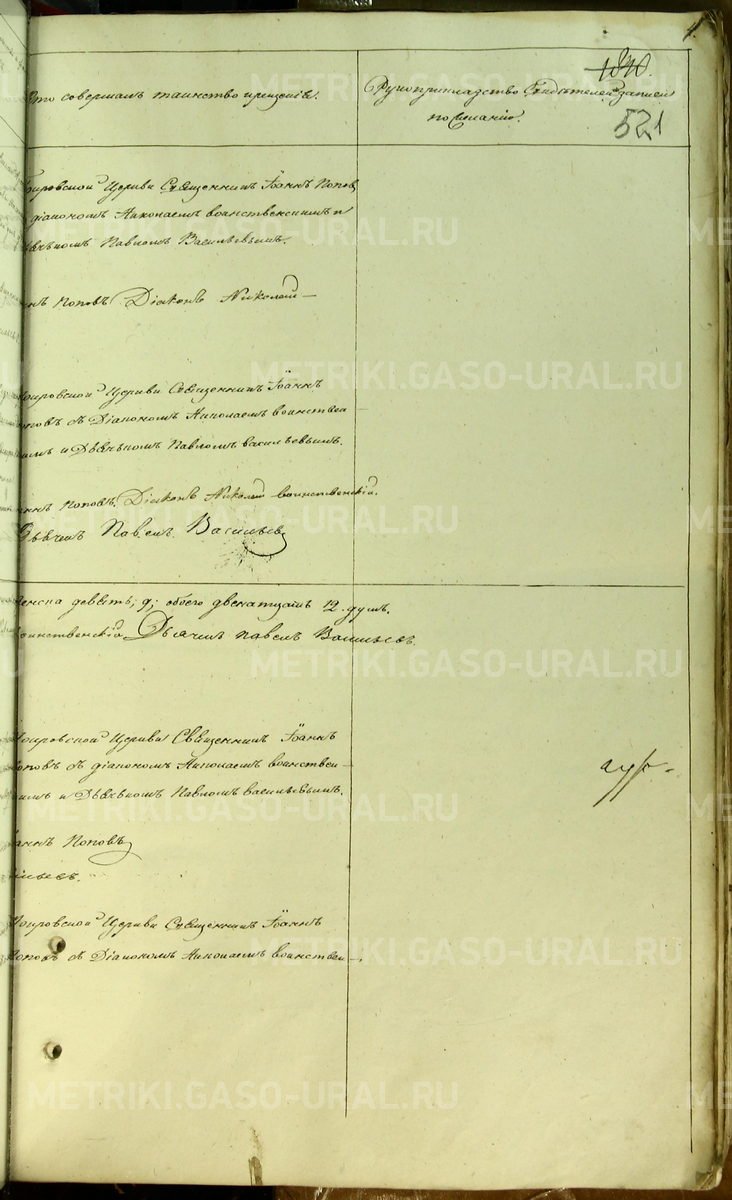 4.
1840.
521
Кто совершалъ таинство крещенія.
Рукоприкладство Свидѣтелей записи
по желанію.
Покровской Церкви Священникъ Іоаннъ Поповъ
діакономъ Николаемъ воинственскимъ и
Дьячкомъ Павломъ Васильевымъ.
Поповъ Діаконъ Николай
Покровской Церкви Священникъ Іоаннъ
Поповъ съ Діакономъ Николаемъ воинствен
скимъ и Дьячкомъ Павломъ васильевымъ.
Іоаннъ Поповъ. Діаконъ Николай воинственскій.
Дьячекъ Павелъ Васильевъ
женска девять; 9; обоего двенатцать 12 душъ.
воинственскій Дьячекъ Павелъ Васильевъ.
Покровской Церкви Священникъ Іоаннъ
Поповъ съ діакономъ Николаемъ воинствен-
скимъ и Дьячкомъ Павломъ васильевымъ.
Іоаннъ Поповъ
сильевъ.
Покровской Церкви Священникъ Іоаннъ
Поповъ съ Діакономъ Николаемъ воинствен-
METRIKI.GASO-URAL.RU